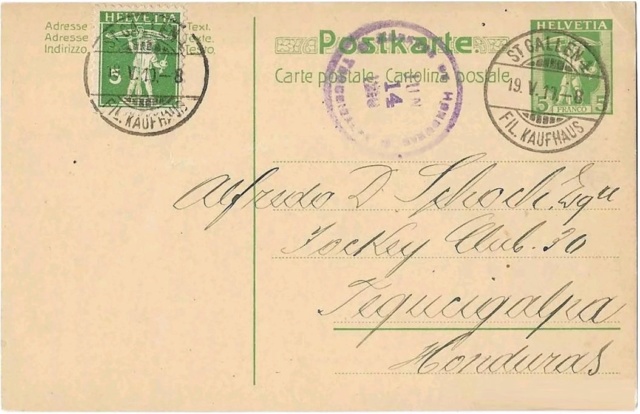 Adresse
Adresse
Indirizzo
Text.
Texte.
Testo.
HELVETIA
5
V.10.-8
FIL. KAUFHAUS
Postkarte.
Carte postale. Cartolina postale.
HONDURAS
14
HELVETIA
5 5
FRANCO
ST. GALLEN
19.V.10.-8
FIL. KAUFHAUS
Alfredo D. Schoch Esqu
Jockey Club. 30
Tegucigalpa
Honduras